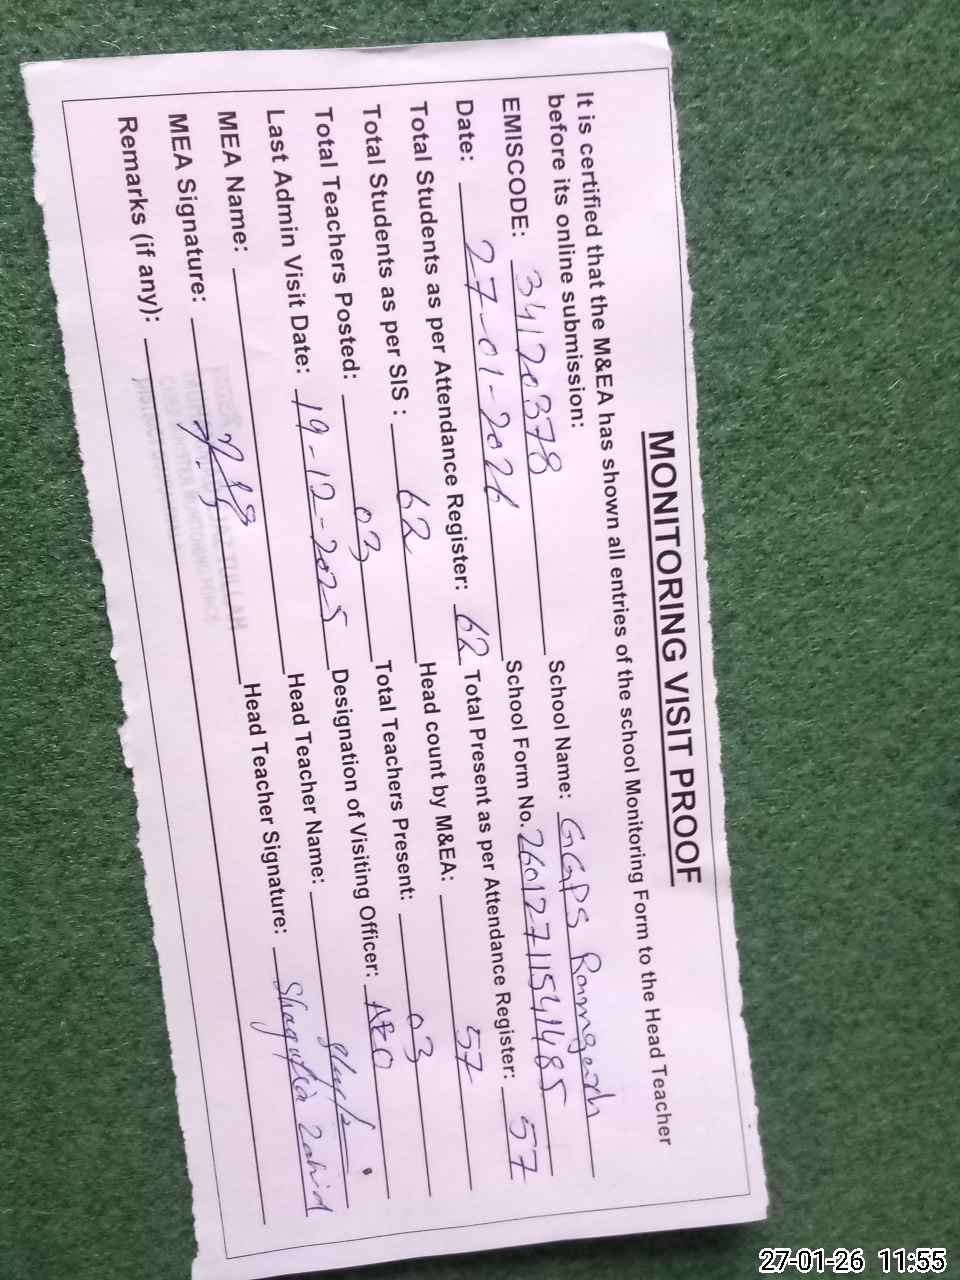 MONITORING VISIT PROOF
It is certified that the M&EA has shown all entries of the school Monitoring Form to the Head Teacher
before its online submission:
EMISCODE: 34120378 School Name: GGPS
Date: 27-01-2026 School Form No. 26012711541485
Total Students as per Attendance Register: 62 Total Present as per Attendance Register: 57
Total Students as per SIS : 62 Head count by M&EA: 57
Total Teachers Posted: 03 Total Teachers Present: 03
Last Admin Visit Date: 19-12-2025 Designation of Visiting Officer: AEO
MEA Name: Head Teacher Name:
MEA Signature: Head Teacher Signature: Shagufta Zahid
Remarks (if any):
27-01-26 11:55